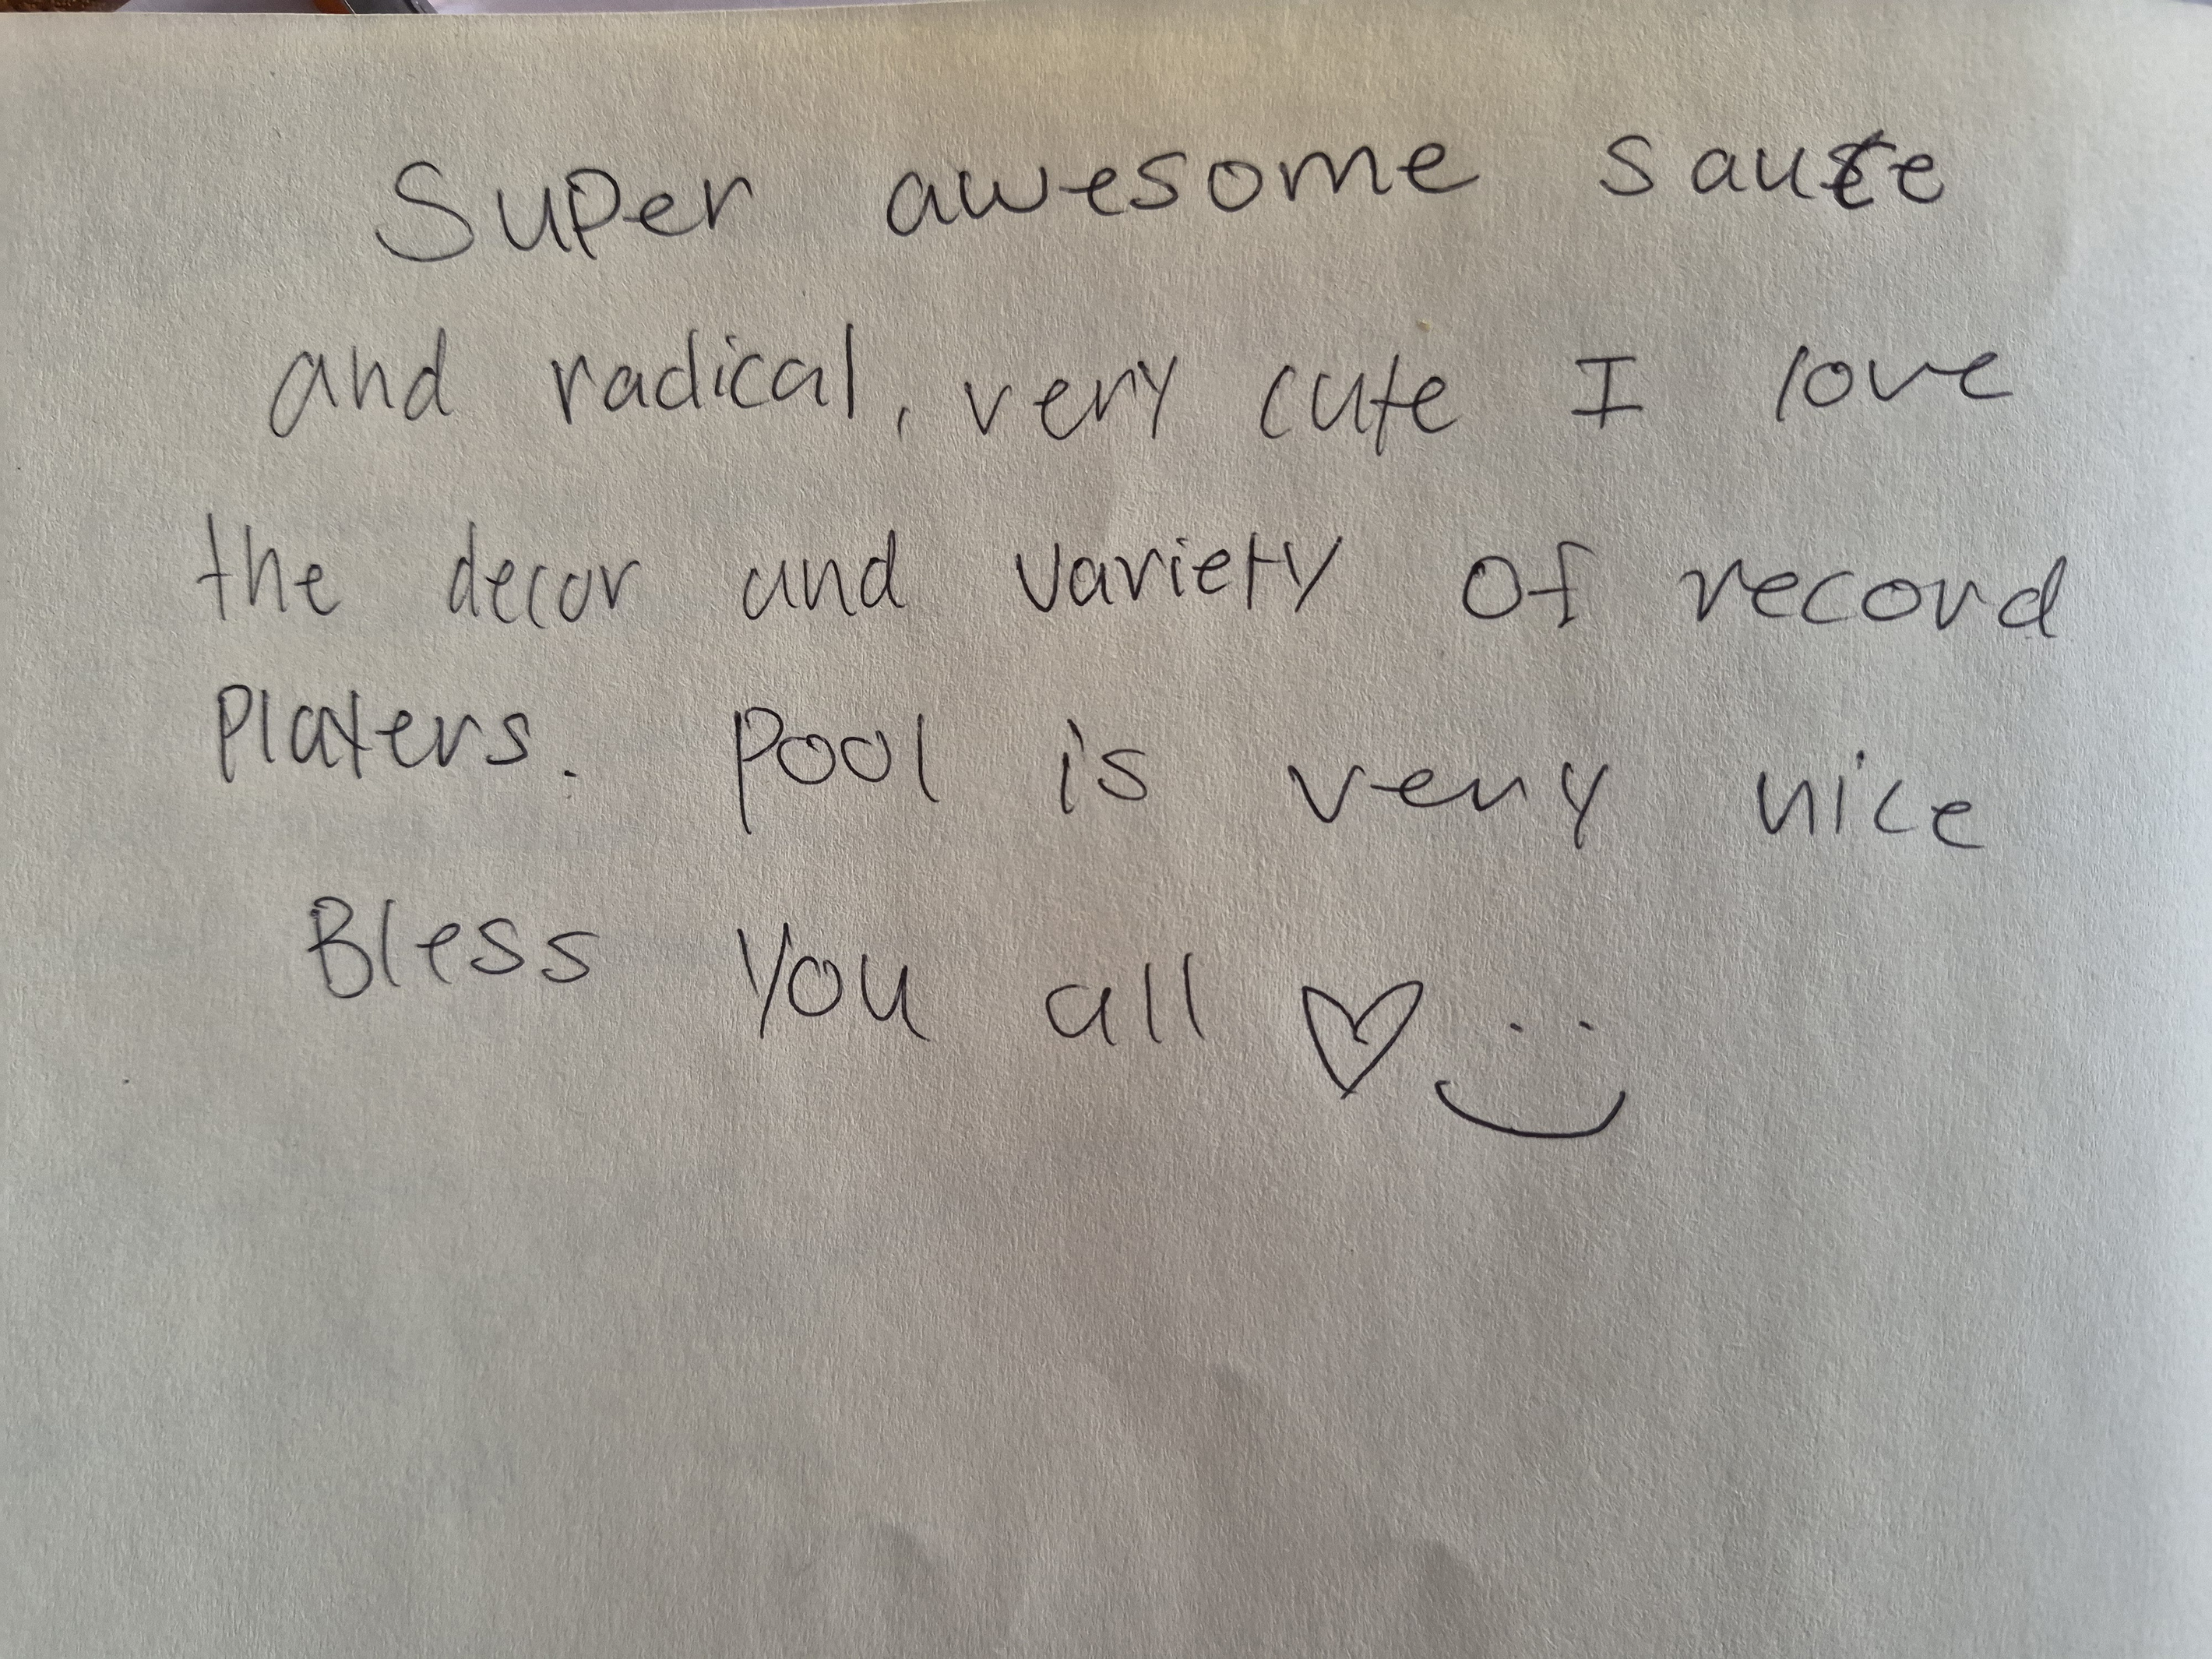 Super awesome sauce
and radical, very cute I love
the decor and variety of record
Players. Pool is very nice
Bless You all ♡ :)